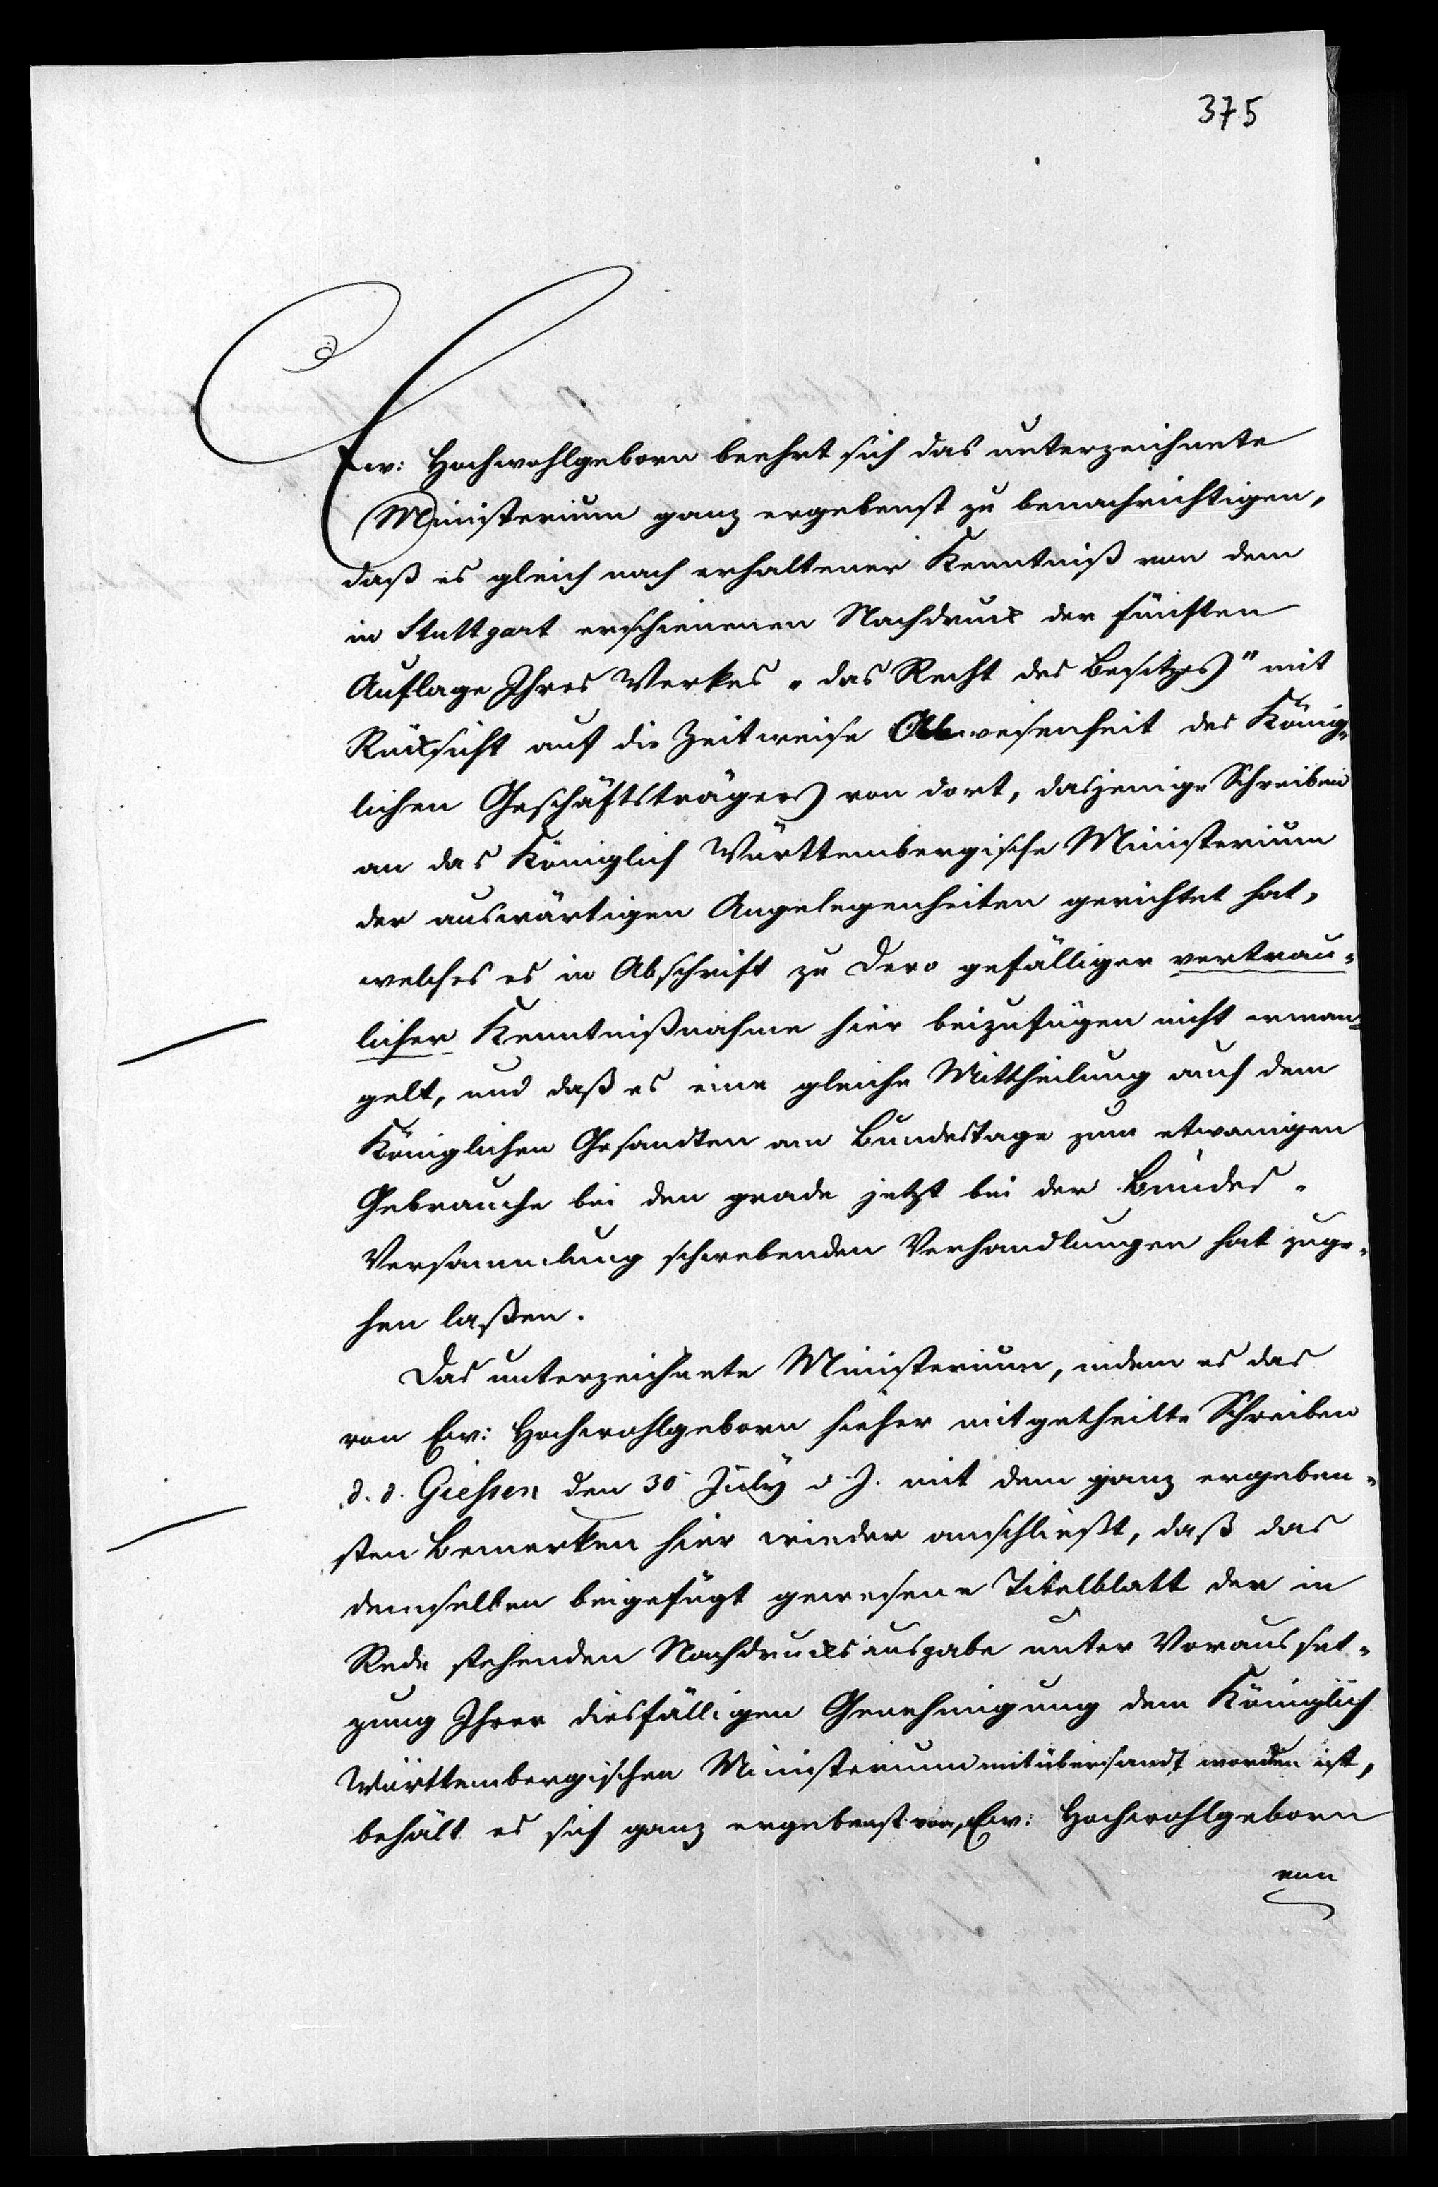 375
Ew: Hochwohlgeborn beehrt sich das unterzeichnete
Ministerium ganz ergebenst zu benachrichtigen,
daß es gleich nach erhaltener Kenntniß von dem
in Stuttgart erschienenen Nachdruck der fünften
Auflage Ihres Werkes „das Recht des Besitzes" mit
Rücksicht auf die Zeitweise Abwesenheit des König-
lichen Geschäftsträgers von dort, dasjenige Schreiben
an das Königlich Württembergische Ministerium
der auswärtigen Angelegenheiten gerichtet hat,
welches es in Abschrift zu Dero gefälliger vertrau-
licher Kenntnißnahme hier beizufügen nicht erman-
gelt, und daß es eine gleiche Mittheilung auch dem
Königlichen Gesandten am Bundestage zum etwanigen
Gebrauche bei den grade jetzt bei der Bundes-
Versammlung schwebenden Verhandlungen hat zuge-
hen laßen.
Das unterzeichnete Ministerium, indem es das
von Ew: Hochwohlgeborn hieher mitgetheilte Schreiben
d. d. Giessen den 30 July d. J. mit dem ganz ergeben-
sten Bemerken hier wieder anschließt, daß das
demselben beigefügt gewesene Titelblatt der in
Rede stehenden Nachdrucksausgabe unter Vorausset-
zung Ihrer diesfälligen Genehmigung dem Königlich
Württembergischen Ministerium mitübersandt worden ist,
behält es sich ganz ergebenst vor, Ew: Hochwohlgeborn
von